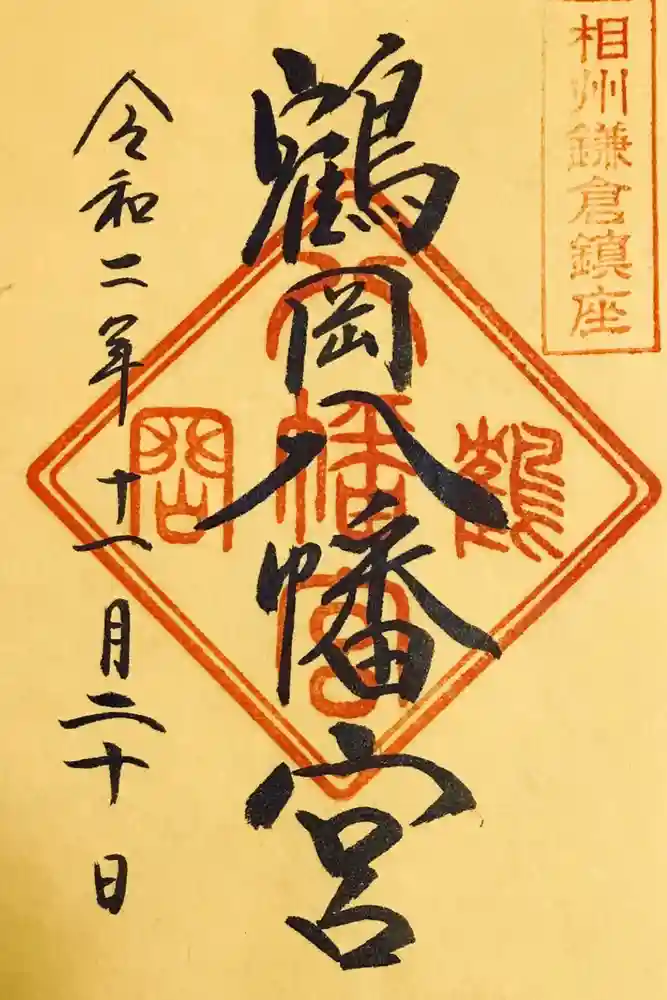 相州鎌倉鎮座
鶴岡八幡宮
鶴岡八幡宮
令和二年十一月二十日